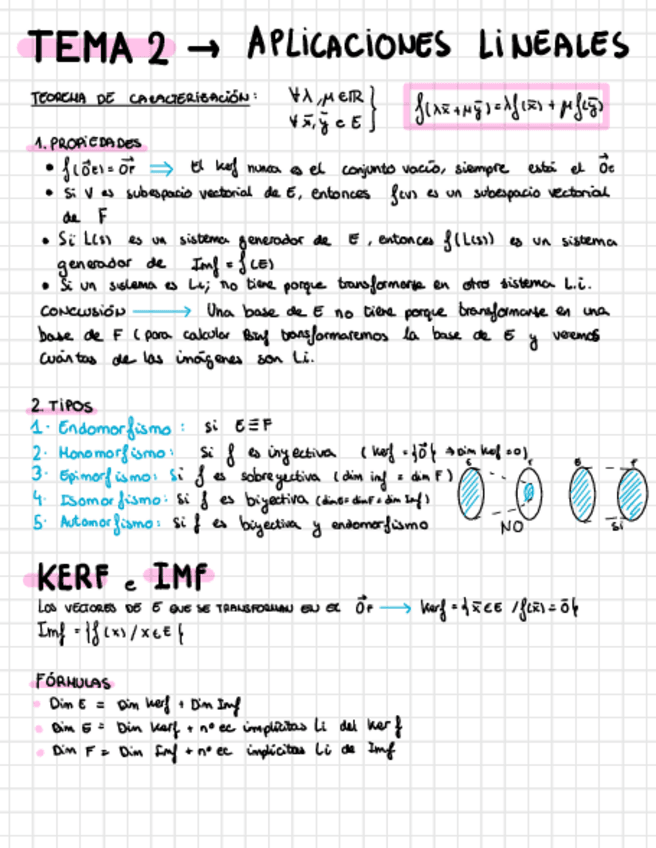 TEMA 2 → APLICACIONES LINEALES
TEOREMA DE CARACTERIZACIÓN: ∀λ,μ∈ℝ
∀x̄,ȳ ∈ E } f(λx̄+μȳ)=λf(x̄) + μf(ȳ)
1. PROPIEDADES
• f(0⃗E)=0⃗F ⇒ El Kerf nunca es el conjunto vacío, siempre está el 0⃗E
• Si V es subespacio vectorial de E, entonces f(v) es un subespacio vectorial
de F
• Si L(S) es un sistema generador de E, entonces f(L(S)) es un sistema
generador de Imf = f(E)
• Si un sistema es Li; no tiene porque transformarse en otro sistema L.i.
CONCLUSIÓN → Una base de E no tiene porque transformarse en una
base de F (para calcular Bimf transformaremos la base de E y veremos
cuántas de las imágenes son Li.
2. TIPOS
1· Endomorfismo: si E≡F
2· Monomorfismo: Si f es inyectiva (Kerf = {0⃗} → Dim Kerf =0)
3· Epimorfismo: Si f es sobreyectiva (dim imf = dim F)
4· Isomorfismo: Si f es biyectiva (dimE= dimF= dim Imf)
5· Automorfismo: Si f es biyectiva y endomorfismo
E F E F
NO SI
KERF e IMF
LOS VECTORES DE E QUE SE TRANSFORMAN EN EL 0⃗F → Kerf = {x̄∈E / f(x̄)=0̄}
Imf = {f(x) / x∈E}
FÓRMULAS
• Dim E = Dim Kerf + Dim Imf
• Dim E = Dim Kerf + nº ec implícitas Li del Kerf
• Dim F = Dim Imf + nº ec implícitas Li de Imf